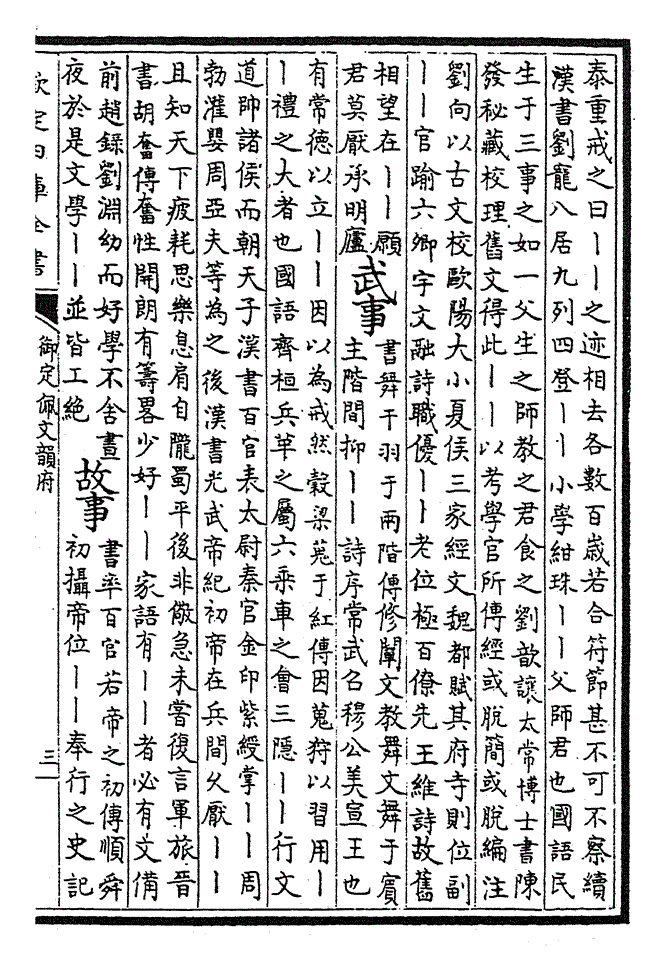 泰重戒之曰丨丨之迹相去各數百歲若合符節甚不可不察續
漢書劉寵八居九列四登丨丨小學紺珠丨丨父師君也國語民
生于三事之如一父生之師教之君食之劉歆讓太常博士書陳
發秘藏校理舊文得此丨丨以考學官所傳經或脫簡或脫編注
劉向以古文校歐陽大小夏侯三家經文魏都賦其府寺則位副
丨丨官踰六卿宇文融詩職優丨丨老位極百僚先王維詩故舊
相望在丨丨願
君莫厭承明廬
武事
書舞干羽于兩階傳修闡文教舞文舞于賓
主階間抑丨丨詩序常武召穆公美宣王也
有常德以立丨丨因以為戒然榖梁蒐于紅傳因蒐狩以習用丨
丨禮之大者也國語齊桓兵革之屬六乘車之會三隱丨丨行文
道帥諸侯而朝天子漢書百官表太尉秦官金印紫綬掌丨丨周
勃灌嬰周亞夫等為之後漢書光武帝紀初帝在兵間乆厭丨丨
且知天下疲耗思樂息肩自隴蜀平後非儆急未嘗復言軍旅晉
書胡奮傳奮性開朗有籌畧少好丨丨家語有丨丨者必有文備
前趙錄劉淵幼而好學不舍晝
夜於是文學丨丨並皆工絶
故事
書率百官若帝之初傳順舜
初攝帝位丨丨奉行之史記
欽定四庫全書
御定佩文韻府
三